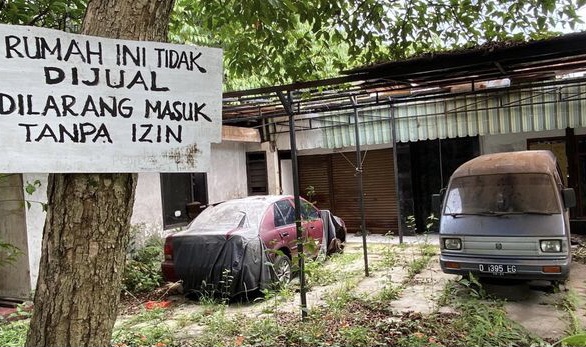 RUMAH INI TIDAK
DIJUAL
DILARANG MASUK
TANPA IZIN
D 1395 EG